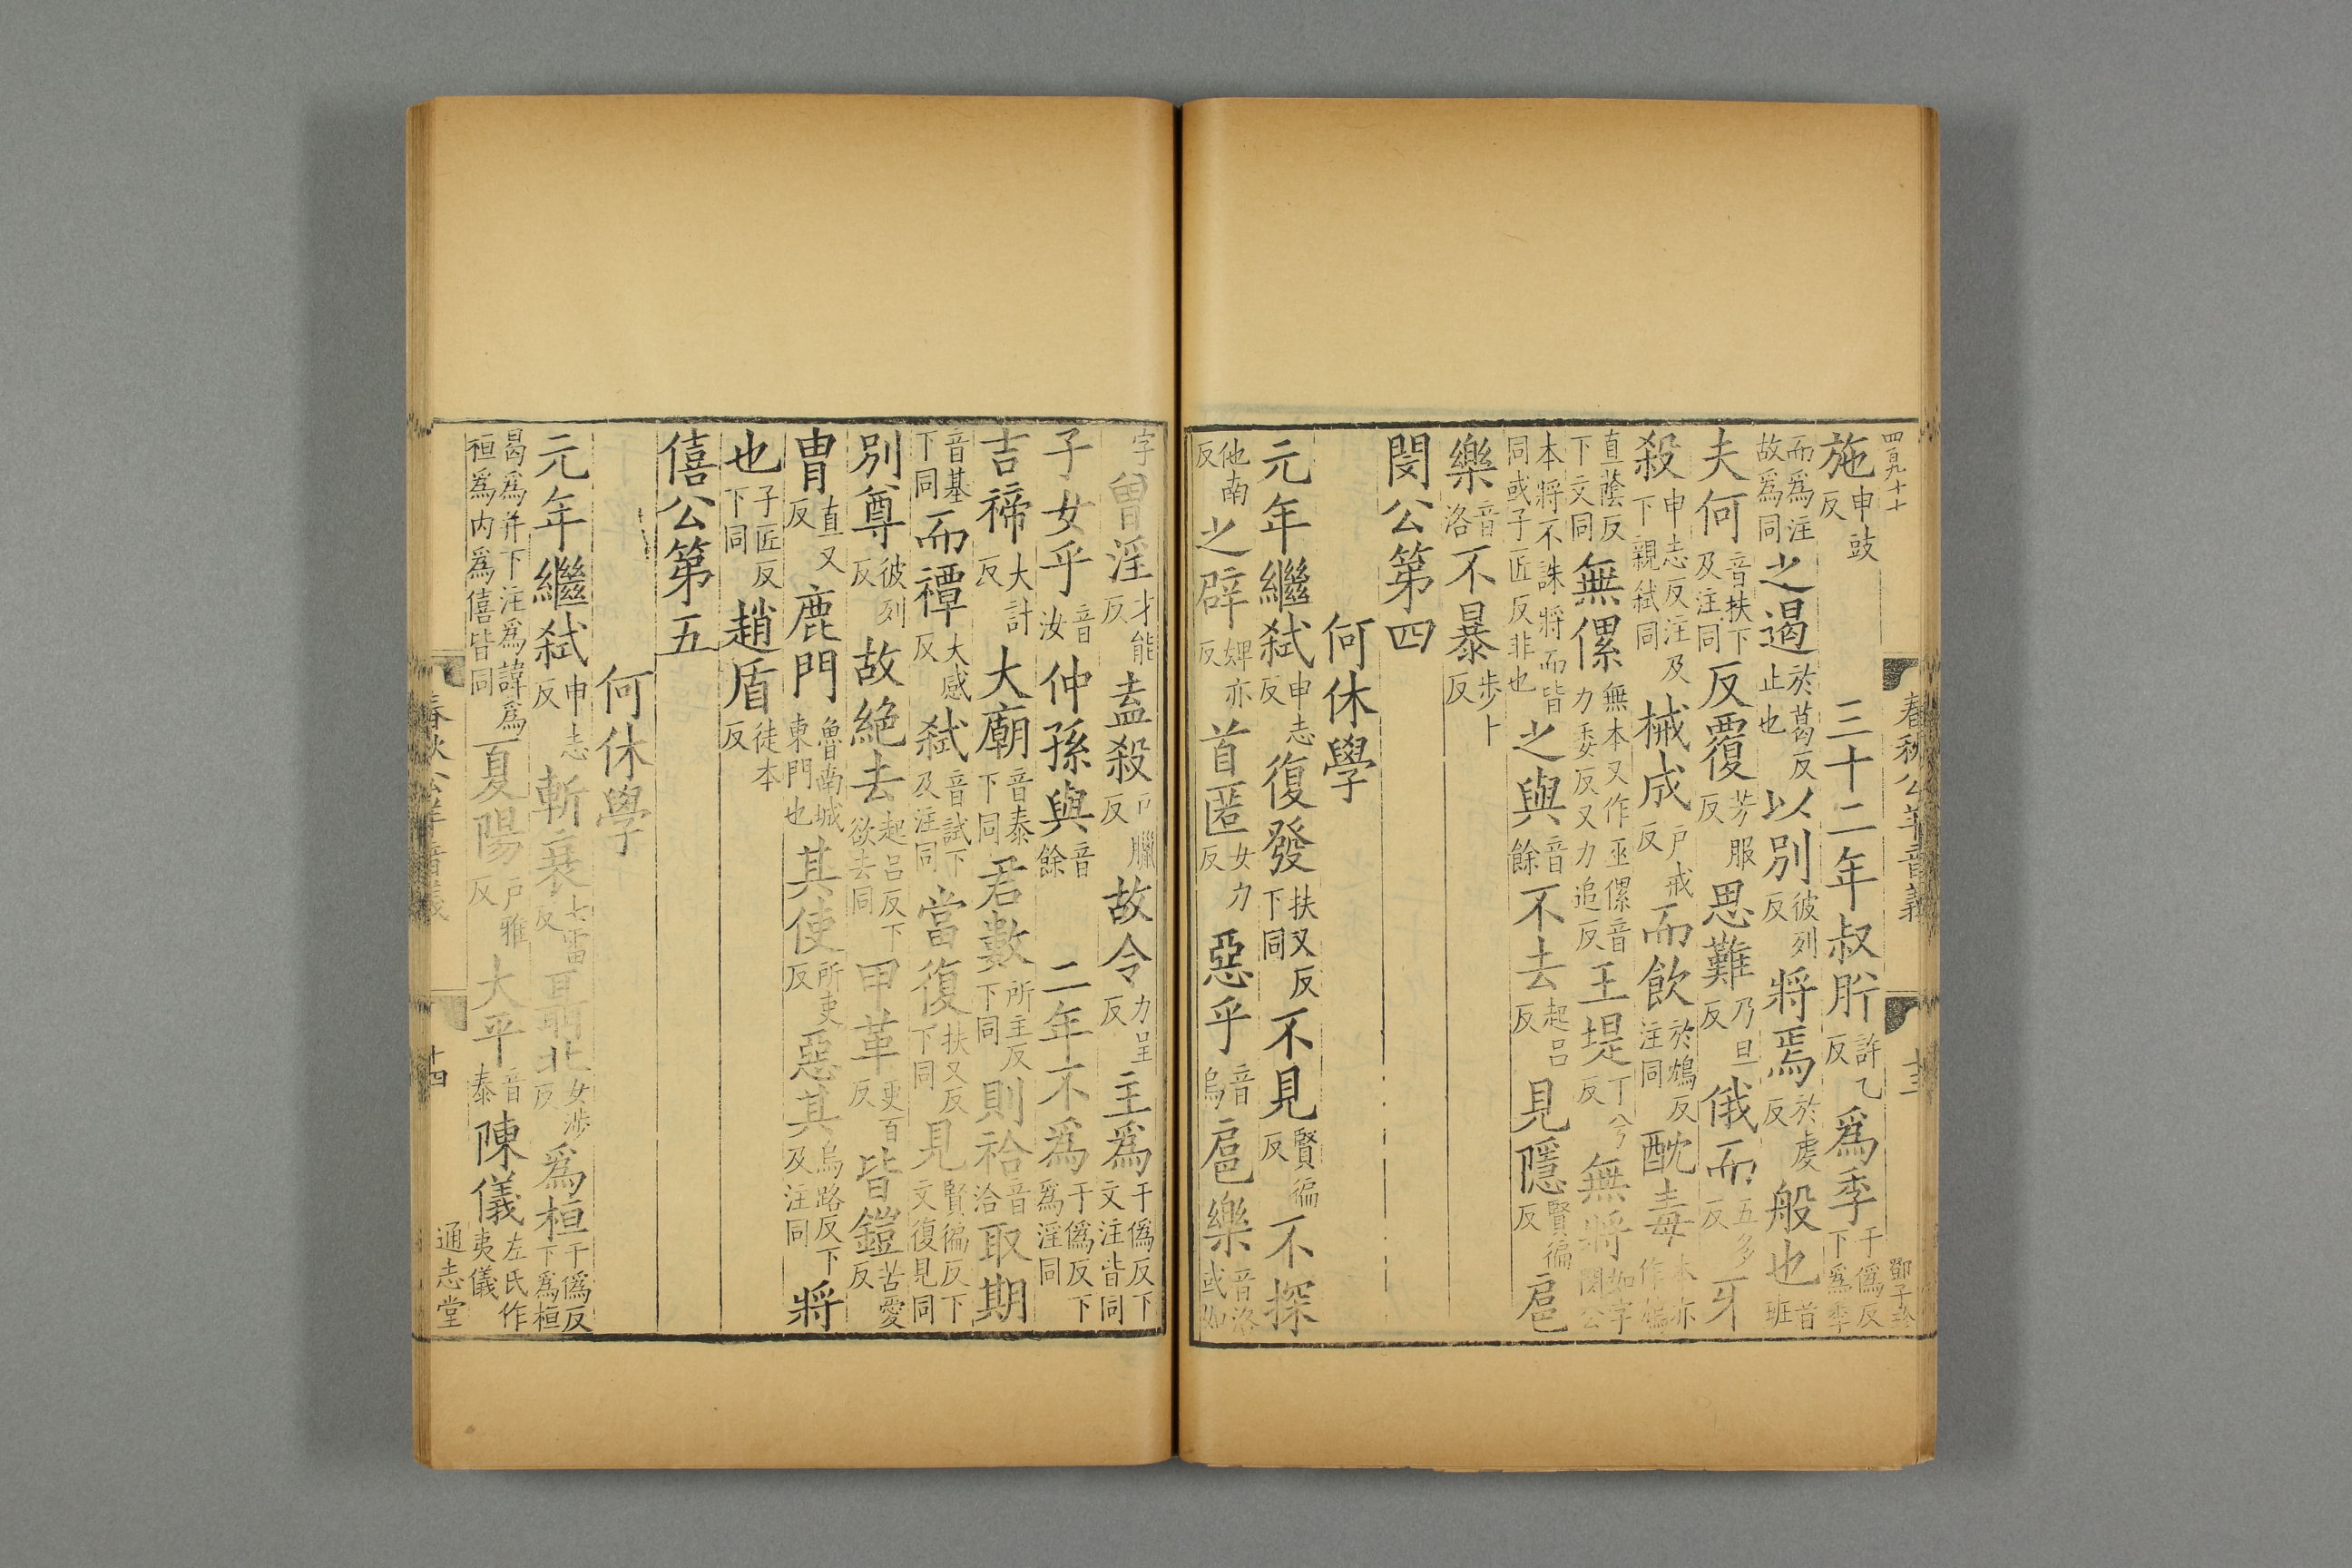 四百九十七
春秋公羊音義
鄧子珍
施申豉反三十二年叔肸許乙反爲季于僞反下爲季
而爲注故爲同之遏於葛反止也以別彼列反將焉於虔反般也音班
夫何音扶下及注同反覆芳服反思難乃旦反俄而五多反牙
殺申志反注及下親弑同械成戸戒反而飲於鴆反注同酖毒本亦作鴆
直蔭反下文同無傫無本又作巫傫音力委反又力追反王堤丁兮反無將如字閔公
本將不誅將而皆同或子匠反非也之與音餘不去起呂反見隱賢徧反扈
樂音洛不暴步卜反
閔公第四
何休學
元年繼弑申志反復發扶又反下同不見賢徧反不探
他南反之辟婢亦反首匿女力反惡乎音烏扈樂音洛或如
字曾淫才能反盍殺戸臘反故令力呈反主爲于僞反下文注皆同
子女乎音汝仲孫與音餘二年不爲于僞反下爲淫同
吉禘大計反大廟音泰下同君數所主反下同則祫音洽取期
音基下同而禫大感反弑音試下及注同當復扶又反下同見賢徧反下文復見同
別尊彼列反故絶去起呂反下欲去同甲革更百反皆鎧苦愛反
胄直又反鹿門魯南城東門也其使所吏反惡其烏路反下及注同將
也子匠反下同趙盾徒本反
僖公第五
何休學
元年繼弑申志反斬衰七雷反聶北女渉反爲桓于僞反下爲桓
曷爲并下注爲諱爲桓爲内爲僖皆同夏陽戸雅反大平音泰陳儀左氏作夷儀
春秋公羊音義
十四
通志堂